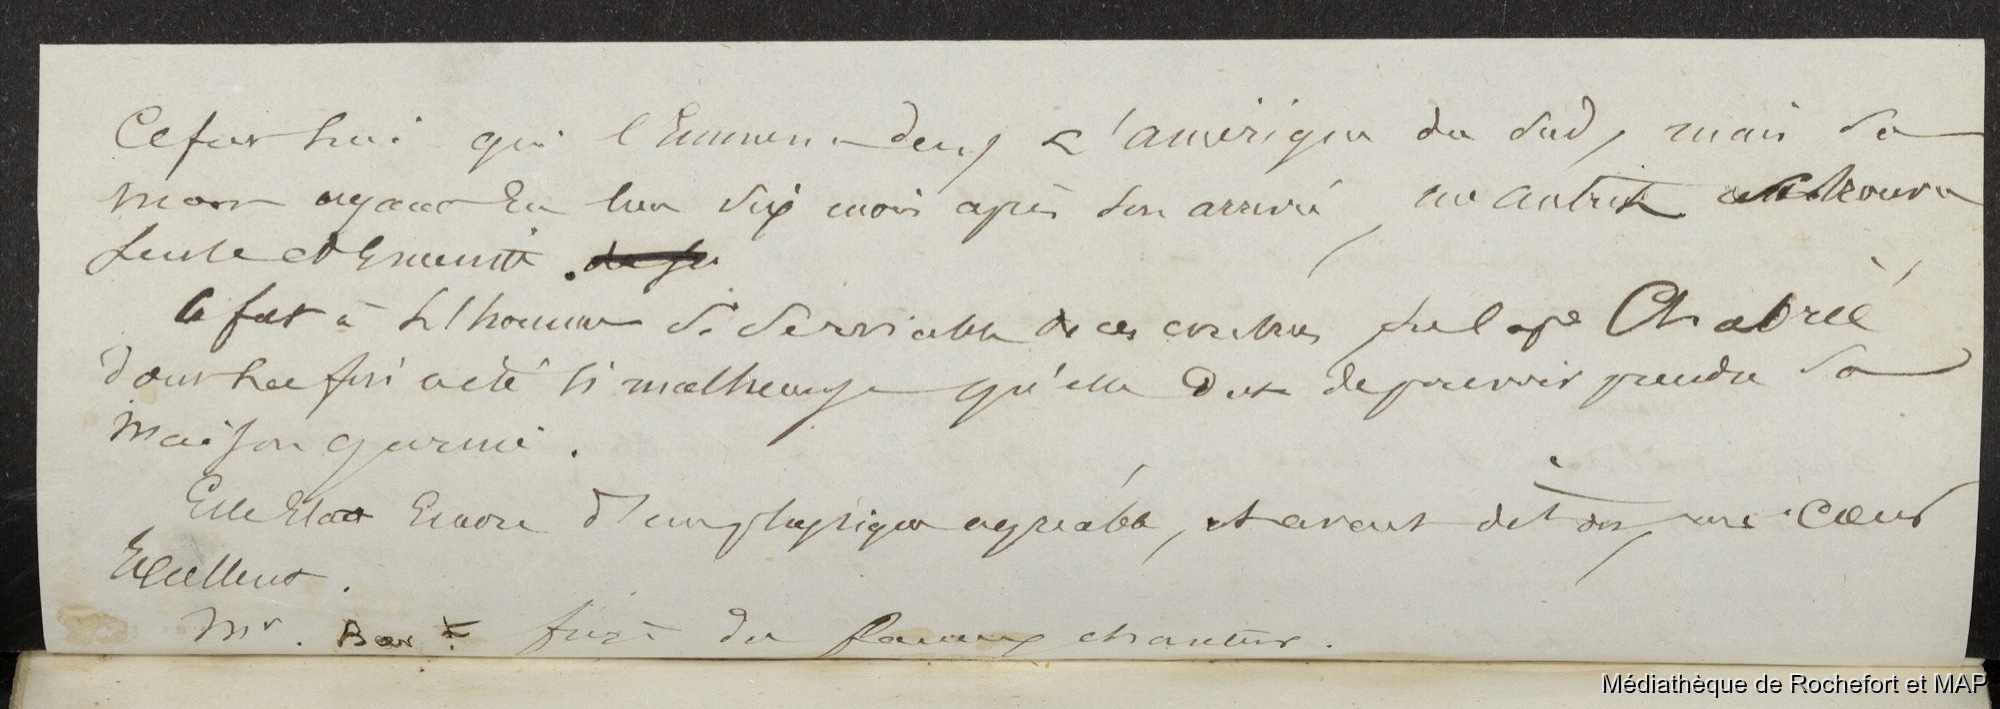 Ce fut lui qui l'emmena dans l'amérique du Sud, mais sa
mort ayant eu lieu six mois après son arrivé, notre autrice se trouva
seule et démunie.
Ce fut à l'homme si serviable de ces contrées, feu le cape Chabrié
dont la fin a été si malheureuse qu'elle dut de pouvoir prendre sa
maison garnie.
Elle était encore d'un physique agréable, et avait dit-on, un cœur
Excellent.
Mr. Bar fils du fameux chanteur.
Médiathèque de Rochefort et MAP